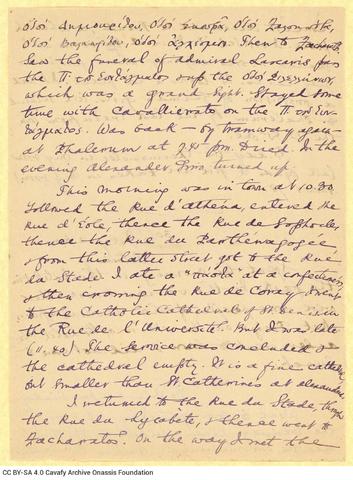 ὁδοῦ Λυκούργου, ὁδοῦ
ὁδοῦ ὁδοῦ Then to Zacharato
Saw the funeral of admiral pass
the Π. τοῦ Συντάγματος the ὁδοῦ
which was a grand sight. Stayed some
time with Cavallierato on the Π. τοῦ Συν-
τάγματος. Was back – by tramway again –
at Phalerum at pm. Dined. In the
evening Alexander, turned up.
This morning was in town at 10.30.
Followed the Rue d'Athéna, entered the
Rue d'Eole, thence the Rue de Sophocles
thence the Rue du Parthenagogee
& from this latter street got to the Rue
du Stade. I ate a at a confectioner's
& then crossing the Rue de Coray I went
to the Catholic Cathedral of St Denis in
the Rue de l'Université. But I was late
(11.20) The service was concluded &
the cathedral empty. It is a fine cathedral
but smaller than St Catherine's at Alexandria
I returned to the Rue du Stade, through
the Rue du Lycabete, & thence went to
Zacharatos. On the way I met the
CC BY-SA 4.0 Cavafy Archive Onassis Foundation